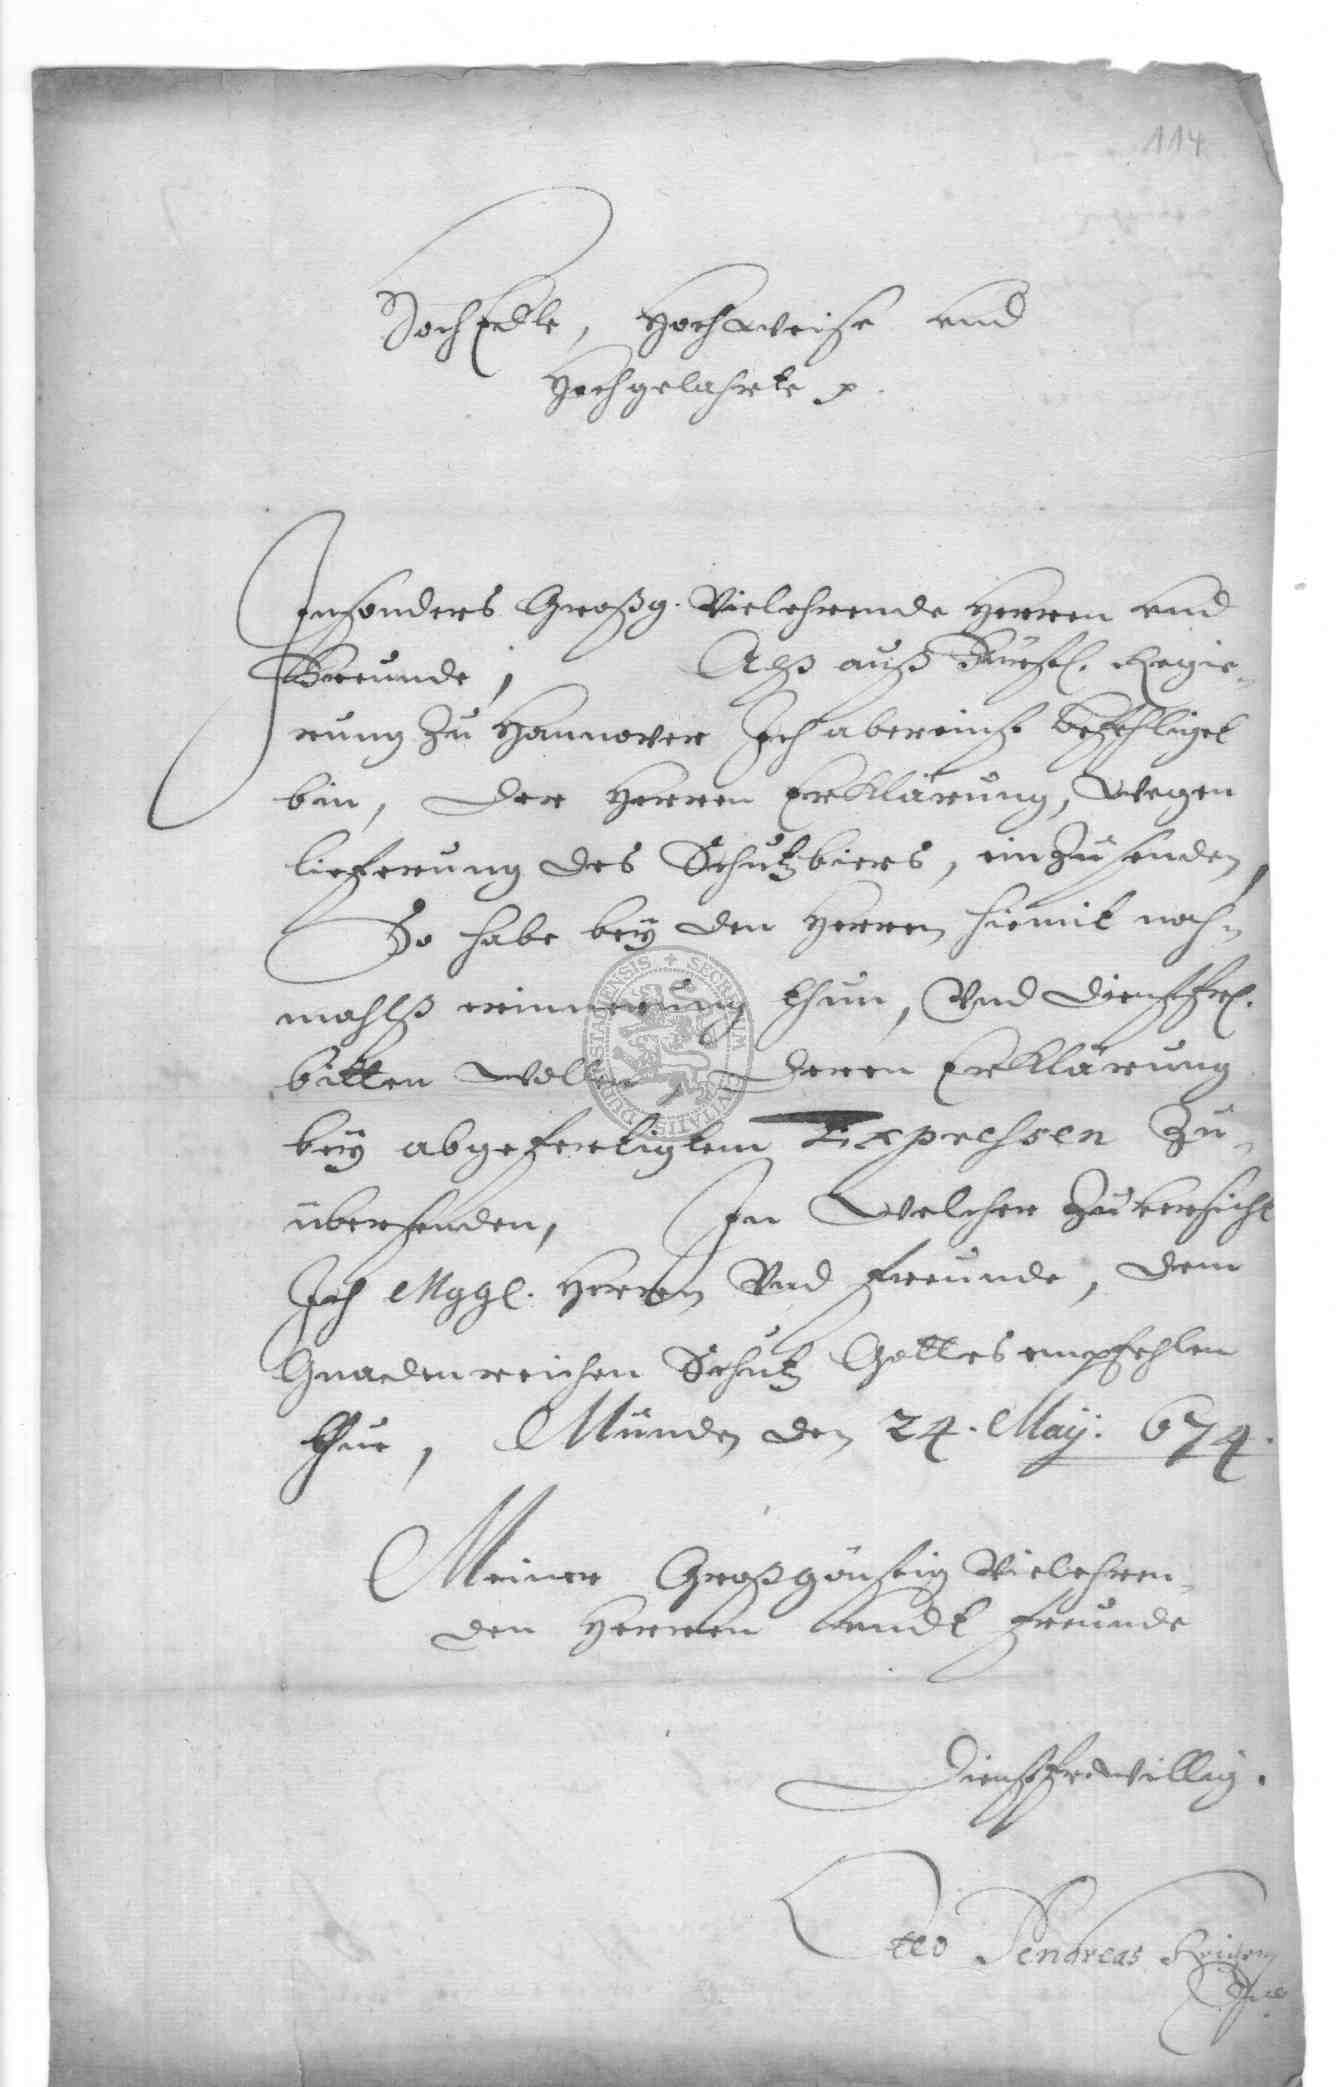 114
HochEdle, Hochweise und
Hochgelahrte p.
Insonders Großg. Vielehrende Herren und
Freunde, Alß auß Fürstl. Regie-
rung zu Hannover Ich abereinst befehliget
bin, der Herren Erklärung, wegen
lieferung des Schutzbiers, einzusenden,
So habe bey den Herren hiemit noch-
mahlß erinnerung thun, Vnd dienstfrl.
bitten wollen, deren Erklärung
bey abgefertigtem Expressen zu-
übersenden, In welcher Zuversicht
Ich Mggl. Herren Vnd freunde, dem
Gnadenreichen Schutz Gottes empfehlen
thue, Münden den 24. Maÿ: 674.
Meiner Großgönstig Vielehren-
den Herren undt freunde
Dienstfreÿwillig.
Otto Andreas
SECRETUM CIVITATIS DUDERSTADIENSIS